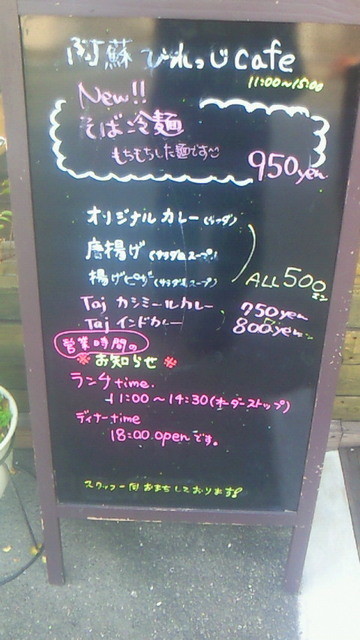 阿蘇 びれっじcafe
11:00～15:00
New!!
そば冷麺
もちもちした麺です
950yen
オリジナルカレー(サラダ)
唐揚げ(サラダ&スープ)
揚げピザ(サラダ&スープ)
ALL500エン
Taj カシミールカレー 750yen
Taj インドカレー 800yen
営業時間の
※お知らせ※
ランチtime.
11:00～14:30(オーダーストップ)
ディナーtime
18:00 openです。
スタッフ一同 おまちしております!!